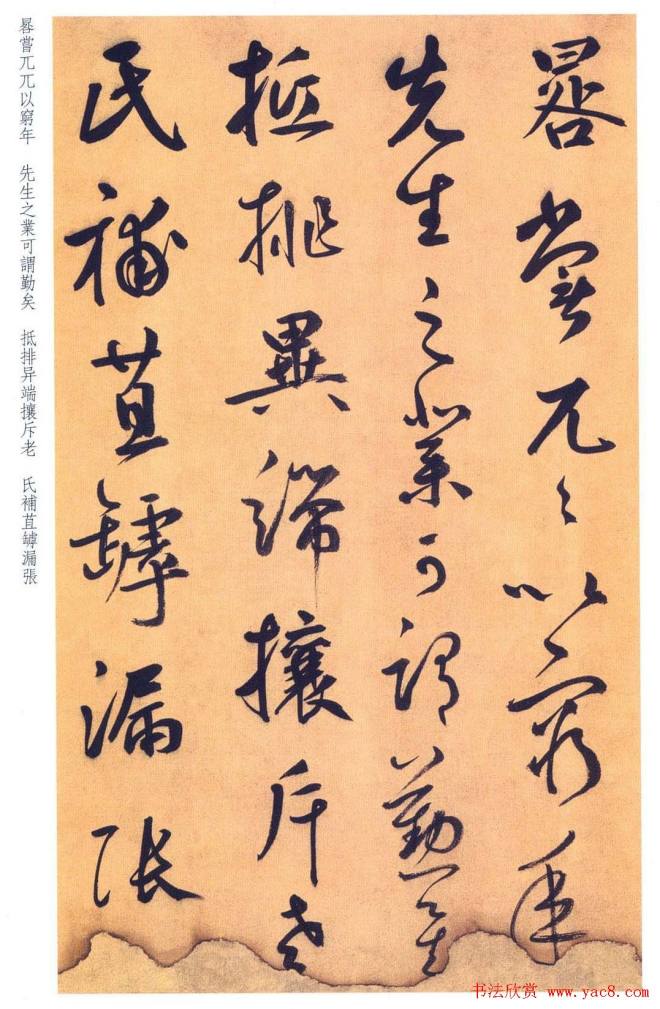 晷嘗兀々以窮年
先生之業可謂勤矣
抵排異端攘斥老
氏補苴罅漏張
晷嘗兀兀以窮年 先生之業可謂勤矣 抵排异端攘斥老 氏補苴罅漏張
书法欣赏 www.yac8.com